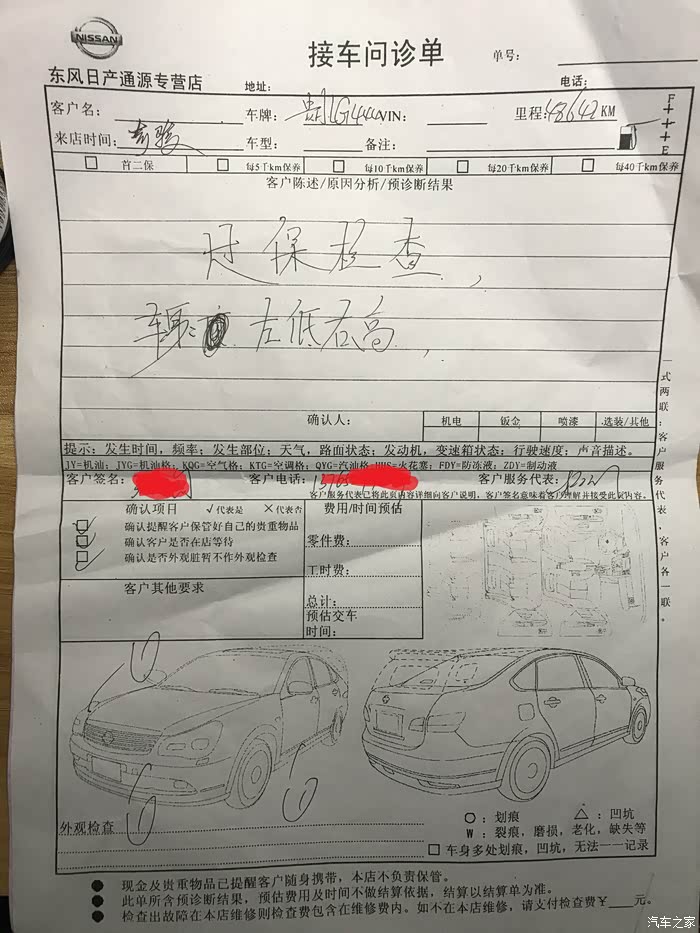 NISSAN
接车问诊单
单号：
东风日产通源专营店 地址： 电话：
客户名： 车牌： VIN： 里程：48642 KM
来店时间：奇骏 车型： 备注：
F
E
首二保 每5千km保养 每10千km保养 每20千km保养 每40千km保养
客户陈述/原因分析/预诊断结果
过保检查，
车身： 左低右高，
确认人： 机电 钣金 喷漆 选装/其他
提示：发生时间，频率；发生部位；天气，路面状态；发动机，变速箱状态；行驶速度；声音描述。
JY=机油；JYG=机油格；KQG=空气格；KTG=空调格；QYG=汽油格；HHS=火花塞；FDY=防冻液；ZDY=制动液
客户签名： 客户电话： 客户服务代表：
客户服务代表已将此页内容详细向客户说明，客户签名意味着客户理解并接受此页内容。
确认项目 √代表是 ×代表否 费用/时间预估
确认提醒客户保管好自己的贵重物品
确认客户是否在店等待 零件费：
确认是否外观脏暂不作外观检查
工时费：
客户其他要求
总计：
预估交车
时间：
一式两联：客户服务代表，客户各一联。
外观检查
○：划痕 △：凹坑
W：裂痕，磨损，老化，缺失等
车身多处划痕，凹坑，无法一一记录
● 现金及贵重物品已提醒客户随身携带，本店不负责保管。
● 此单所含预诊断结果，预估费用及时间不做结算依据，结算以结算单为准。
● 检查出故障在本店维修则检查费包含在维修费内。如不在本店维修，请支付检查费￥____元。
汽车之家